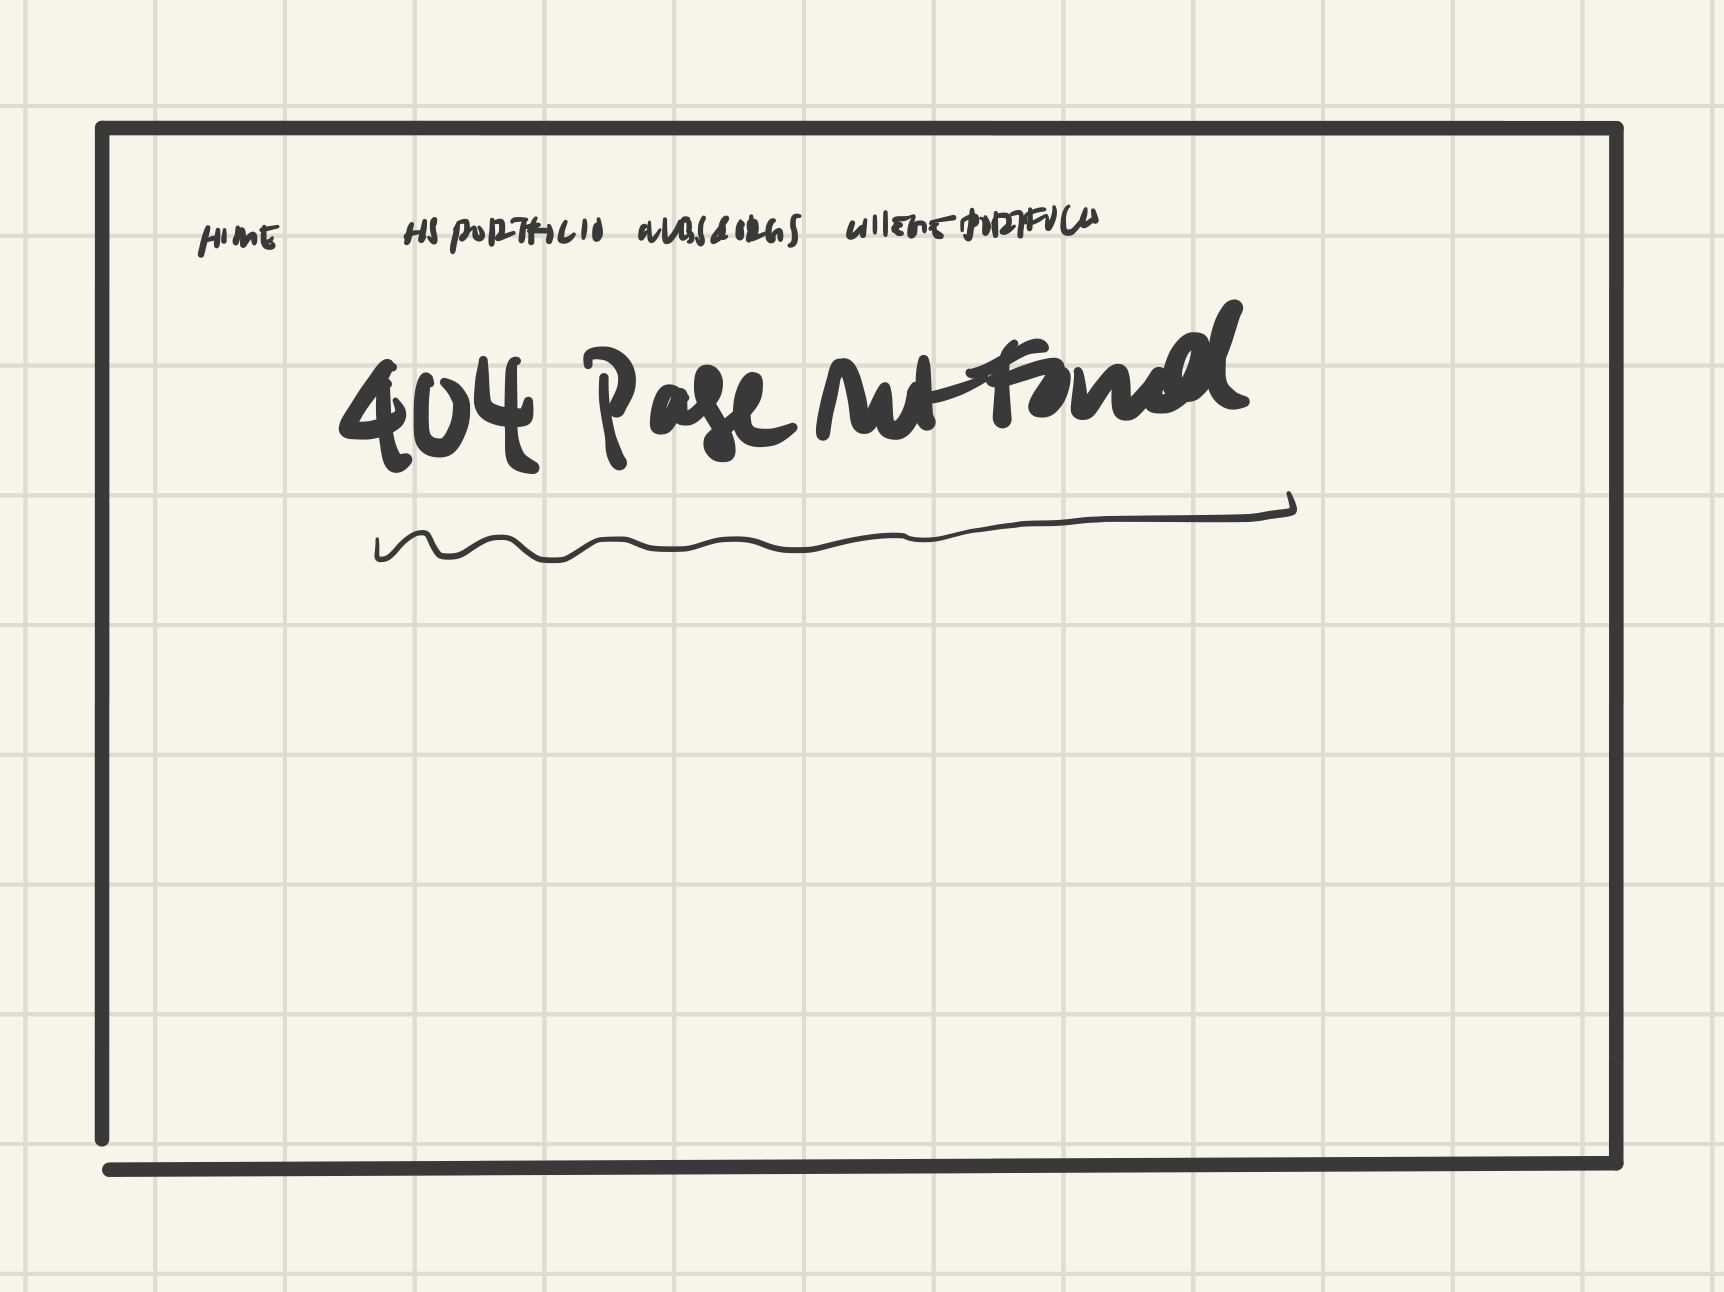 HOME HS PORTFOLIO COLLEGE PORTFOLIO
404 Page Not Found